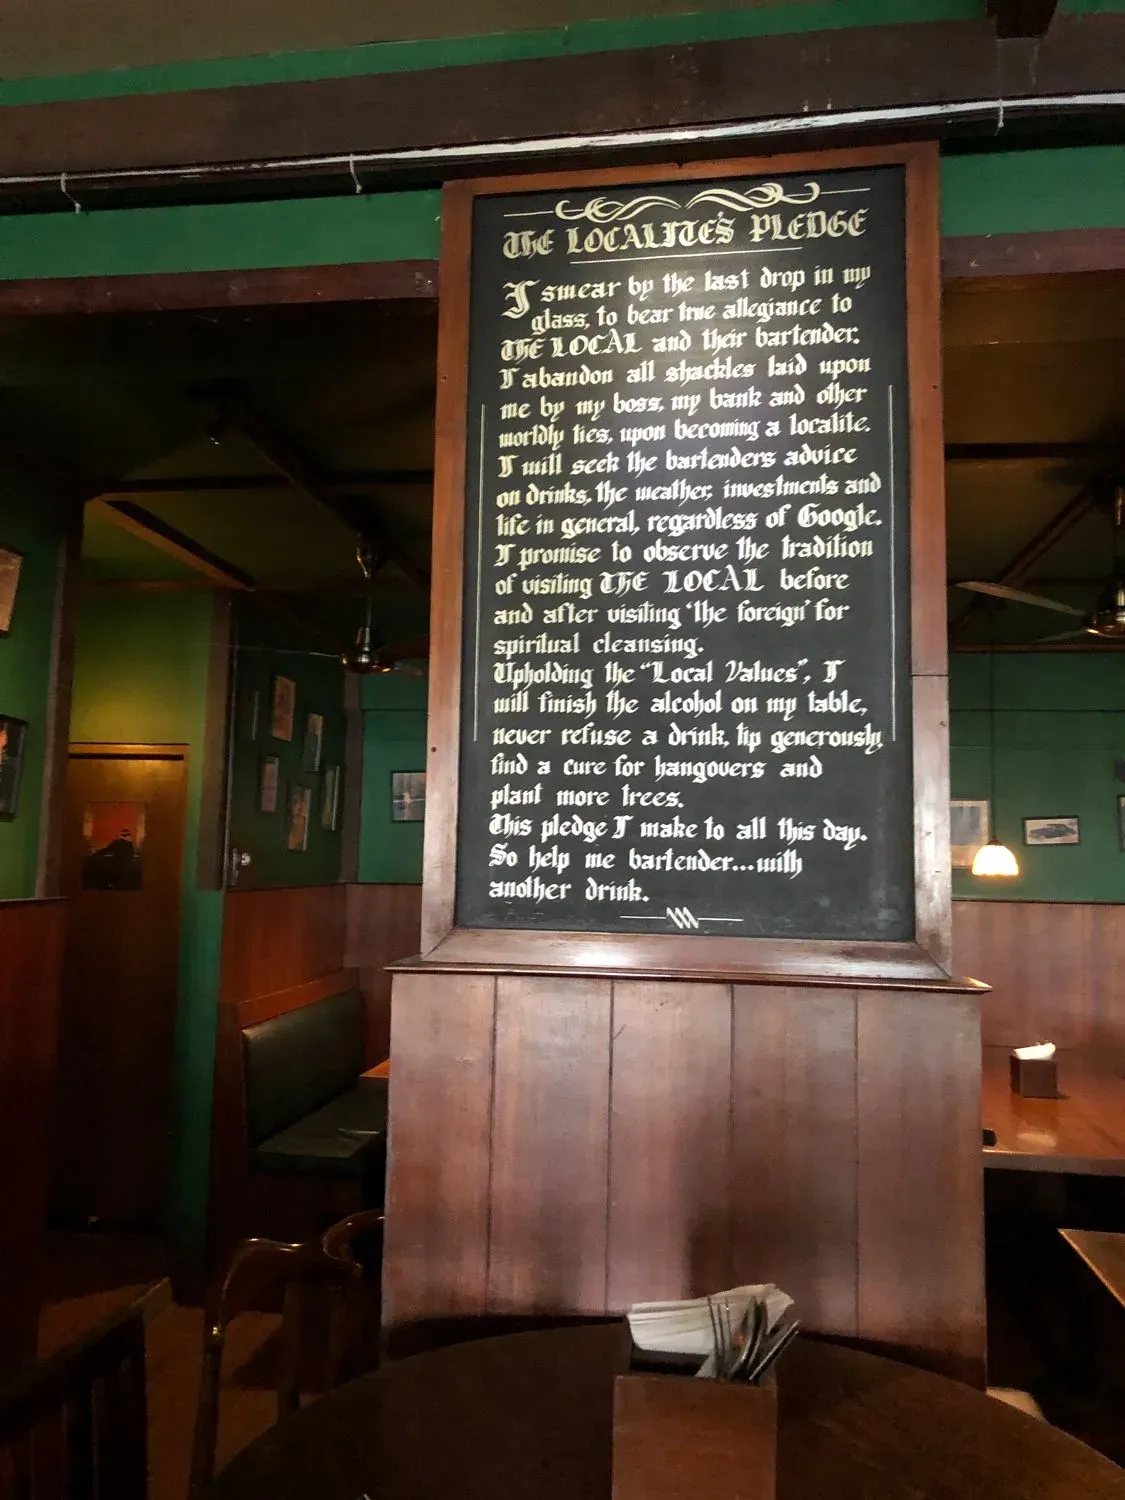 THE LOCALITE'S PLEDGE
I swear by the last drop in my
glass, to bear true allegiance to
THE LOCAL and their bartender.
I abandon all shackles laid upon
me by my boss, my bank and other
worldly ties, upon becoming a localite.
I will seek the bartenders advice
on drinks, the weather, investments and
life in general, regardless of Google.
I promise to observe the tradition
of visiting THE LOCAL before
and after visiting 'the foreign' for
spiritual cleansing.
Upholding the "Local Values", I
will finish the alcohol on my table,
never refuse a drink, tip generously,
find a cure for hangovers and
plant more trees.
This pledge I make to all this day.
So help me bartender...with
another drink.